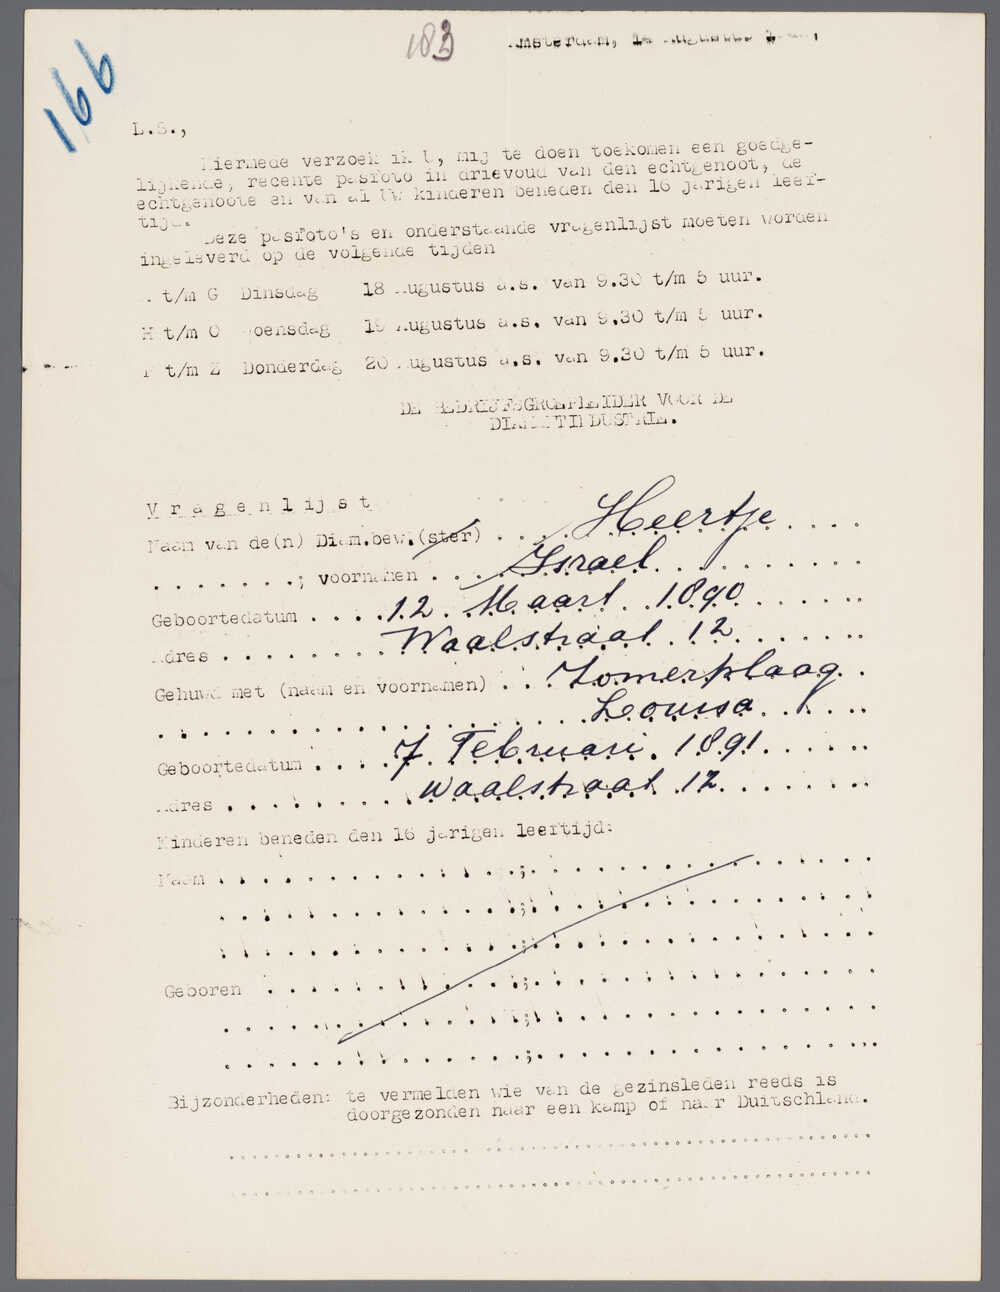 166
183
Amsterdam, 14 Augustus
L.S.,
Hiermede verzoek ik U, mij te doen toekomen een goedge-
lijkende, recente pasfoto in drievoud van den echtgenoot, de
echtgenoote en van al Uw kinderen beneden den 16 jarigen leef-
tijd.
Deze pasfoto's en onderstaande vragenlijst moeten worden
ingeleverd op de volgende tijden
A t/m G Dinsdag 18 Augustus a.s. van 9.30 t/m 5 uur.
H t/m O Woensdag 19 Augustus a.s. van 9.30 t/m 5 uur.
P t/m Z Donderdag 20 Augustus a.s. van 9.30 t/m 5 uur.
DE BEDRIJFSGROEPLEIDER VOOR DE
DIAMANTINDUSTRIE.
Vragenlijst
Naam van de(n) Diam.bew.(ster) . . . Heertje . . . .
. . . . . . . ; voornamen . . . Israel . . . . . . . . .
Geboortedatum . . . . 12 Maart 1890 . . . . . .
Adres . . . . . . . . Waalstraat 12 . . . . . . .
Gehuwd met (naam en voornamen) . . Zomerplaag .
. . . . . . . . . . . . . . . . . . Louisa . . . . . .
Geboortedatum . . . . 7 Februari 1891 . . . . . .
Adres . . . . . . . . . Waalstraat 12 . . . . . . . .
Kinderen beneden den 16 jarigen leeftijd:
Naam . . . . . . . . . . . . . ; . . . . . . . . . . . . . . .
. . . . . . . . . . . . . ; . . . . . . . . . . . . . . .
. . . . . . . . . . . . . ; . . . . . . . . . . . . . . .
Geboren . . . . . . . . . . . ; . . . . . . . . . . . . . . .
. . . . . . . . . . . . . ; . . . . . . . . . . . . . . .
. . . . . . . . . . . . . ; . . . . . . . . . . . . . . .
Bijzonderheden: te vermelden wie van de gezinsleden reeds is
doorgezonden naar een kamp of naar Duitschland.